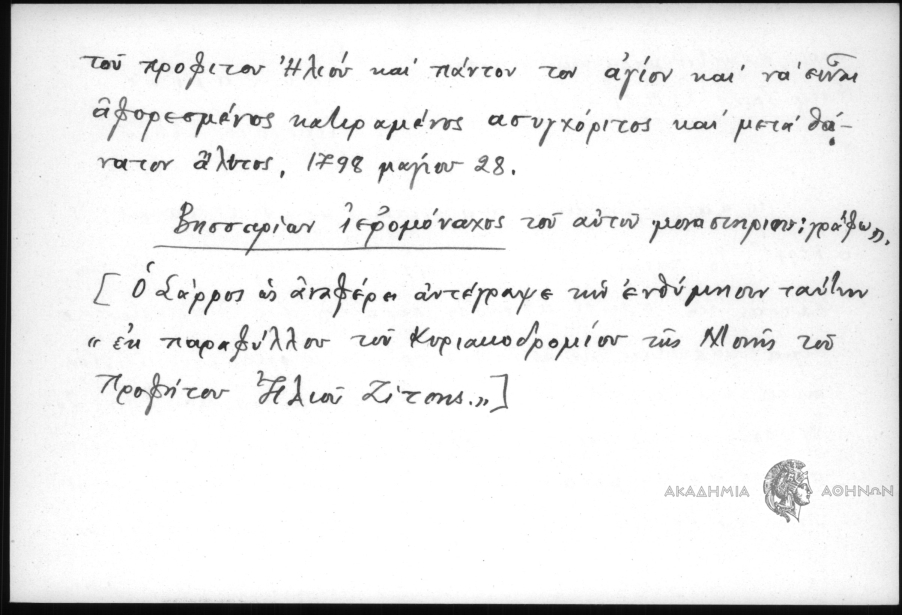 τοῦ προφιτου Ἠλιού και πάντον τον ἁγίον και νὰ εἶναι
ἀφορεσμένος κατιραμένος ασυγχόριτος και μετά θά-
νατον ἄλυτος, 1798 μαγίου 28.
Βησσαρίων ἱερομόναχος τοῦ αὐτοῦ μοναστηρίου: γράφω».
[ Ὁ Σάρρος ὡς ἀναφέρει ἀντέγραψε τὴν ἐνθύμησιν ταύτην
« ἐκ παραφύλλου τοῦ Κυριακοδρομίου τῆς Μονῆς τοῦ
Προφήτου Ἠλιοῦ Ζίτσης.»]
ΑΚΑΔΗΜΙΑ ΑΘΗΝΩΝ